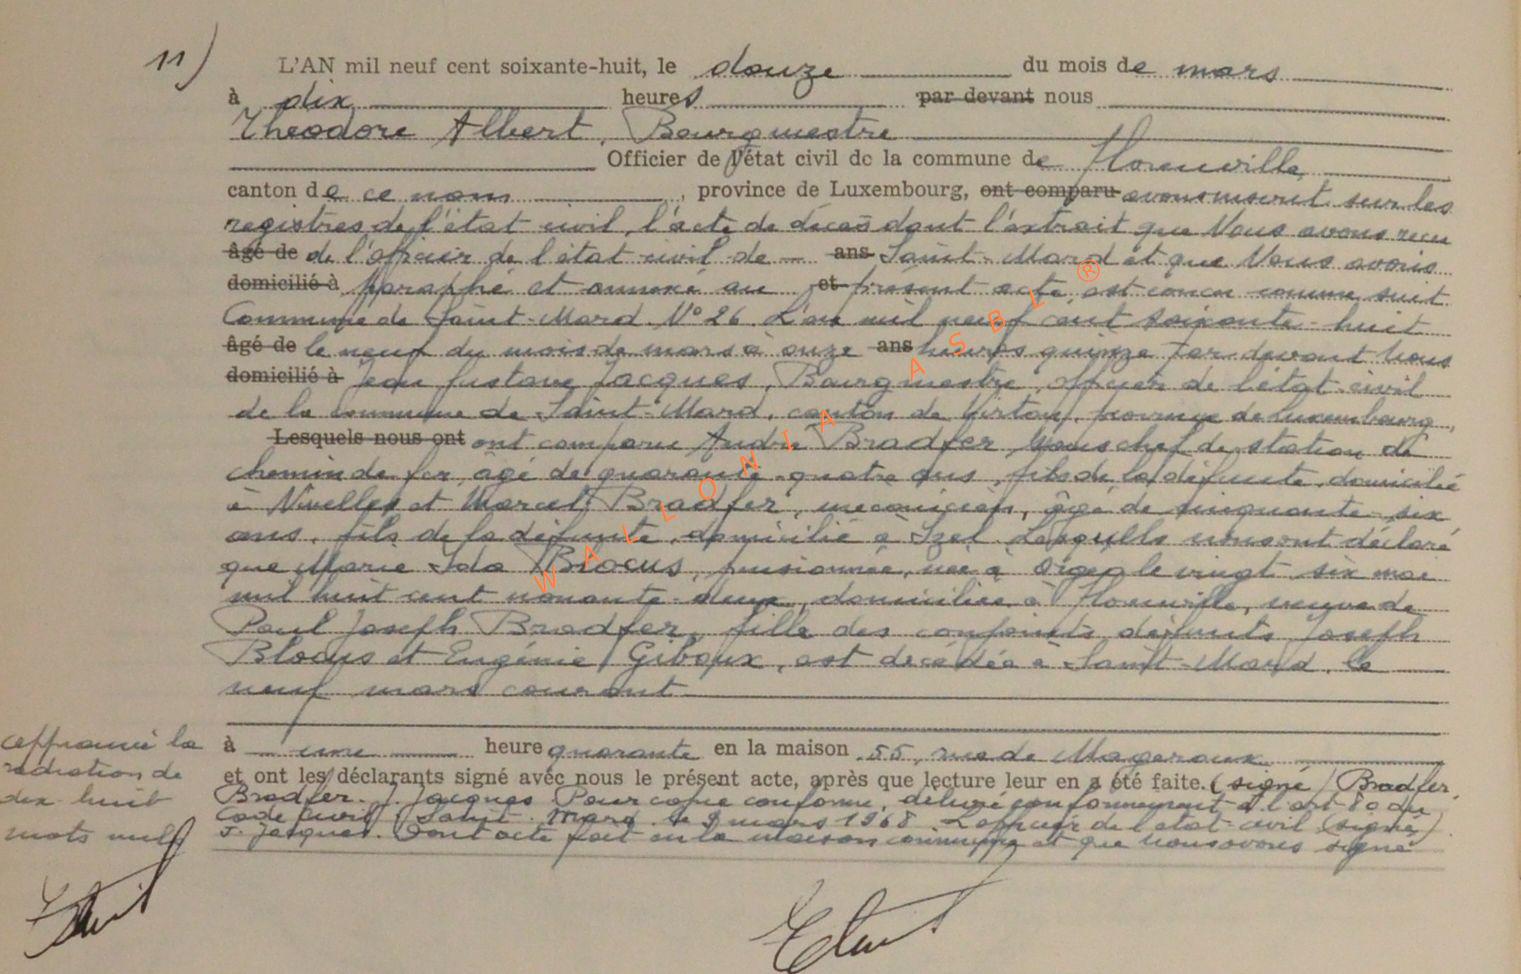 11)
L'AN mil neuf cent soixante-huit, le douze du mois de mars
à dix heures par devant nous
Théodore Albert, Bourgmestre
Officier de l'état civil de la commune de Florenville
canton de ce nom, province de Luxembourg, ont comparu avons inscrit sur les
registres de l'état civil, l'acte de décès dont l'extrait que Nous avons reçu
âgé de de l'officier de l'état civil de ans Saint-Mard et que Nous avons
domicilié à paraphé et annexé au et présent acte, est conçu comme suit
Commune de Saint-Mard N° 26. L'an mil neuf cent soixante-huit
âgé de le neuf du mois de mars à onze ans heures quinze par devant Nous
domicilié à Jean Gustave Jacques, Bourgmestre, officier de l'état civil
de la commune de Saint-Mard, canton de Virton, province de Luxembourg,
Lesquels nous ont ont comparu André Bradfer sous chef de station de
chemin de fer, âgé de quarante-quatre ans, fils de la défunte, domicilié
à Nivelles et Marcel Bradfer, mécanicien, âgé de cinquante-six
ans, fils de la défunte, domicilié à Izel. Lesquels nous ont déclaré
que Marie Ida Blocus, pensionnée, née à le vingt six mai
mil huit cent nonante-deux, domiciliée à Florenville, veuve de
Paul Joseph Bradfer, fille des conjoints défunts Joseph
Blocus et Eugénie Giboux, est décédée à Saint-Mard, le
neuf mars courant
à une heure quarante en la maison 55, rue de Mageroux
et ont les déclarants signé avec nous le présent acte, après que lecture leur en a été faite. (signé) Bradfer.
Bradfer. J. Jacques Pour copie conforme, délivré conformément à l'art 80 du
Code Civil Saint-Mard le 9 mars 1968 L'officier de l'état civil (signé)
J. Jacques. Dont acte fait en la maison commune et que nous avons signé
approuvé la
radiation de
dix-huit
mots nuls
WALLONIA ASBL ®